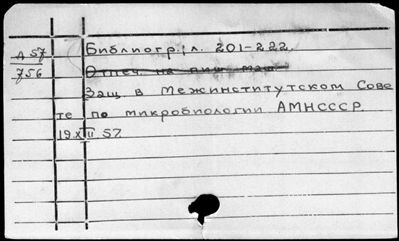 Д57 Библиогр.: л. 201-222.
756 Отпеч. на пиш. маш.
Защ. в Межинститутском Сове-
те по микробиологии АМНСССР
19.XII 57